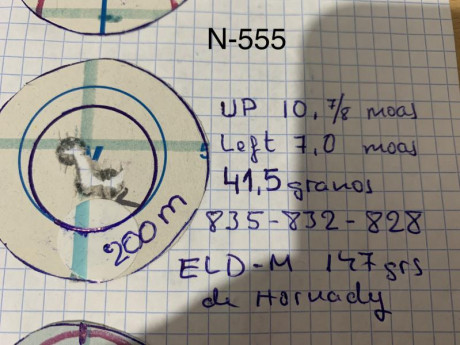 N-555
UP 10,7/8 moas
Left 7,0 moas
41,5 granos
835-832-828
200m
ELD-M 147 grs
de Hornady